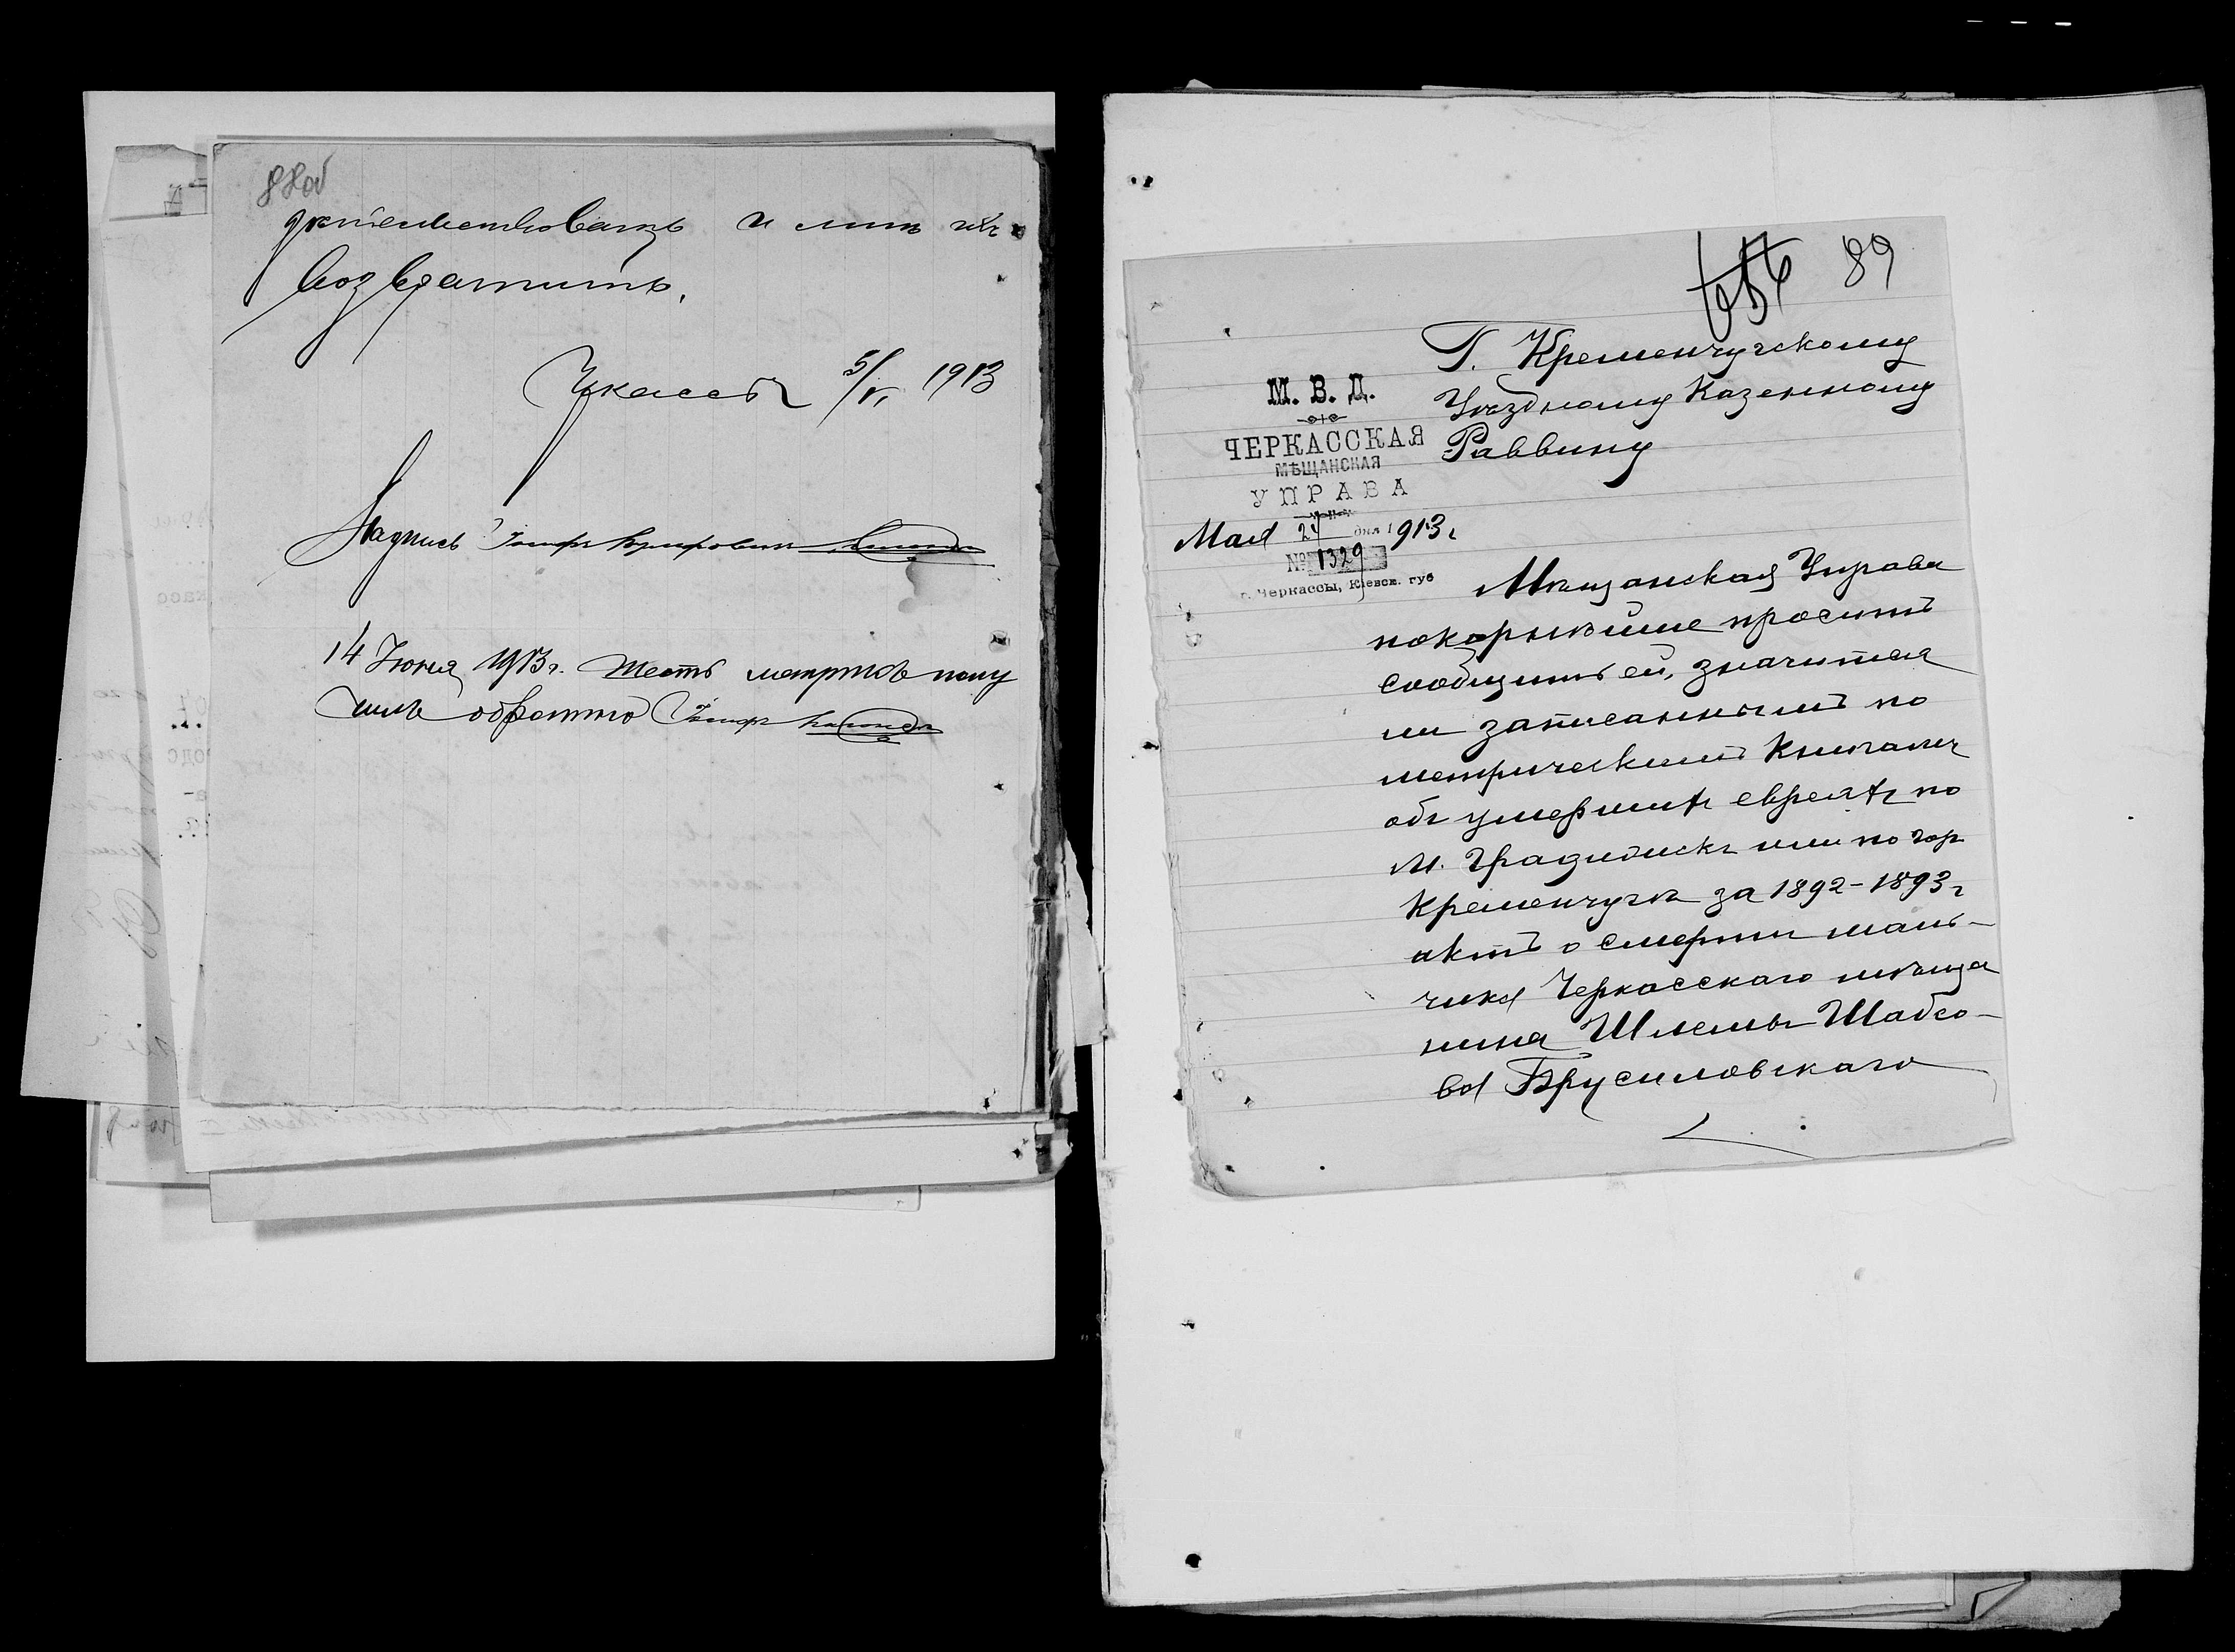 88об
и мнѣ ихъ
возвратить.
5/VI 1913
14 Іюня 1913 г. Шесть метрикъ полу
чилъ обратно Іосифъ
89
Г. Кременчугскому
Уѣздному Казенному
Раввину
М. В. Д.
ЧЕРКАССКАЯ
МѢЩАНСКАЯ
УПРАВА
Мая 24 дня 1913 г
№ 1329
г. Черкассы, Кіевск. губ
Мѣщанская Управа
покорнѣйше проситъ
сообщить ей, значится
ли записаннымъ по
метрическимъ книгамъ
объ умершихъ евреяхъ по
м. Градижскъ или по гор
Кременчугъ за 1892-1893 г
актъ о смерти маль-
чика Черкасскаго мѣща
нина Шлемы Шабсо-
ва Брусиловскаго